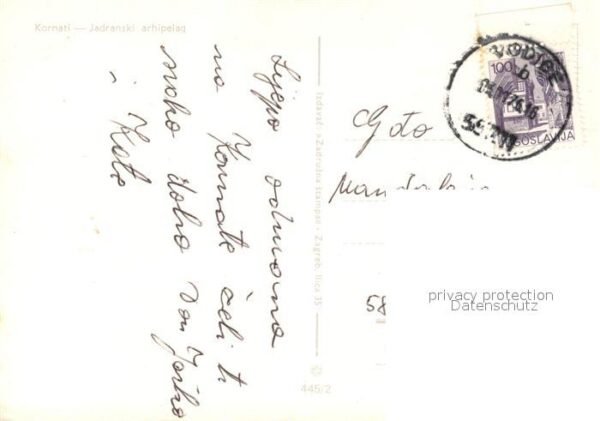 Kornati — Jadranski arhipelag
Lijepo odmorna
na Kornate želi ti
svako dobro Don Joško
i Kate
Izdavač »Zadružna štampa« - Zagreb, Ilica 35
445/2
VODICE
b
100
JUGOSLAVIJA
Gđo
58
privacy protection
Datenschutz